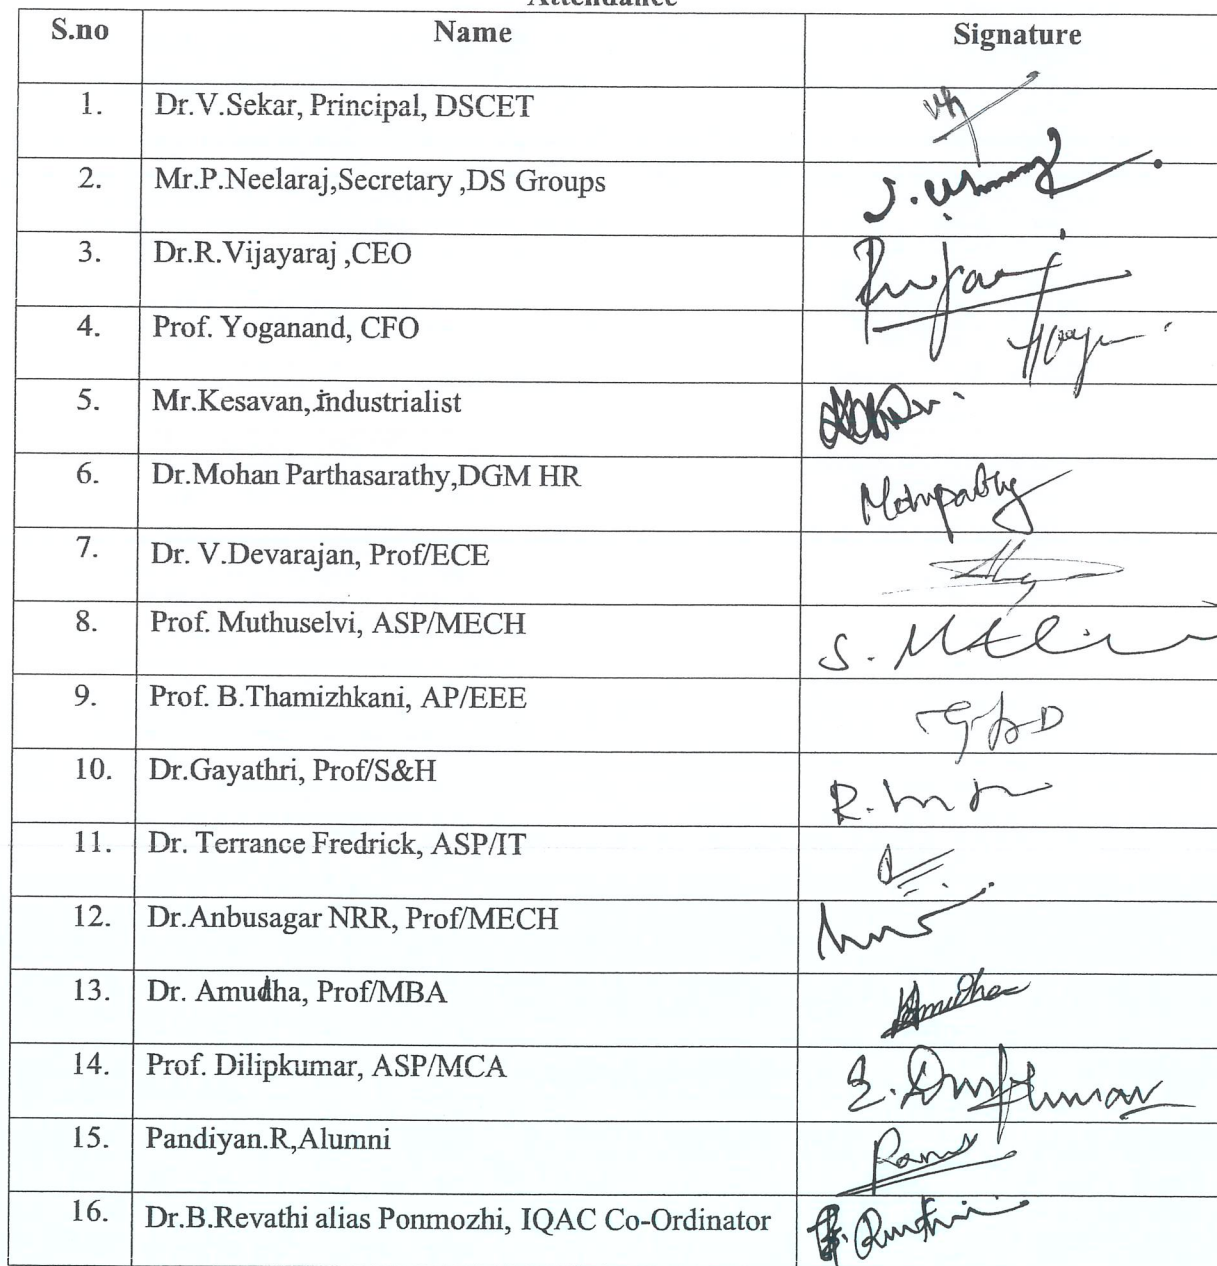 Attendance
S.no Name Signature
1. Dr.V.Sekar, Principal, DSCET
2. Mr.P.Neelaraj,Secretary ,DS Groups
3. Dr.R.Vijayaraj ,CEO
4. Prof. Yoganand, CFO
5. Mr.Kesavan,Industrialist
6. Dr.Mohan Parthasarathy,DGM HR
7. Dr. V.Devarajan, Prof/ECE
8. Prof. Muthuselvi, ASP/MECH
9. Prof. B.Thamizhkani, AP/EEE
10. Dr.Gayathri, Prof/S&H
11. Dr. Terrance Fredrick, ASP/IT
12. Dr.Anbusagar NRR, Prof/MECH
13. Dr. Amudha, Prof/MBA Amudha
14. Prof. Dilipkumar, ASP/MCA
15. Pandiyan.R,Alumni
16. Dr.B.Revathi alias Ponmozhi, IQAC Co-Ordinator